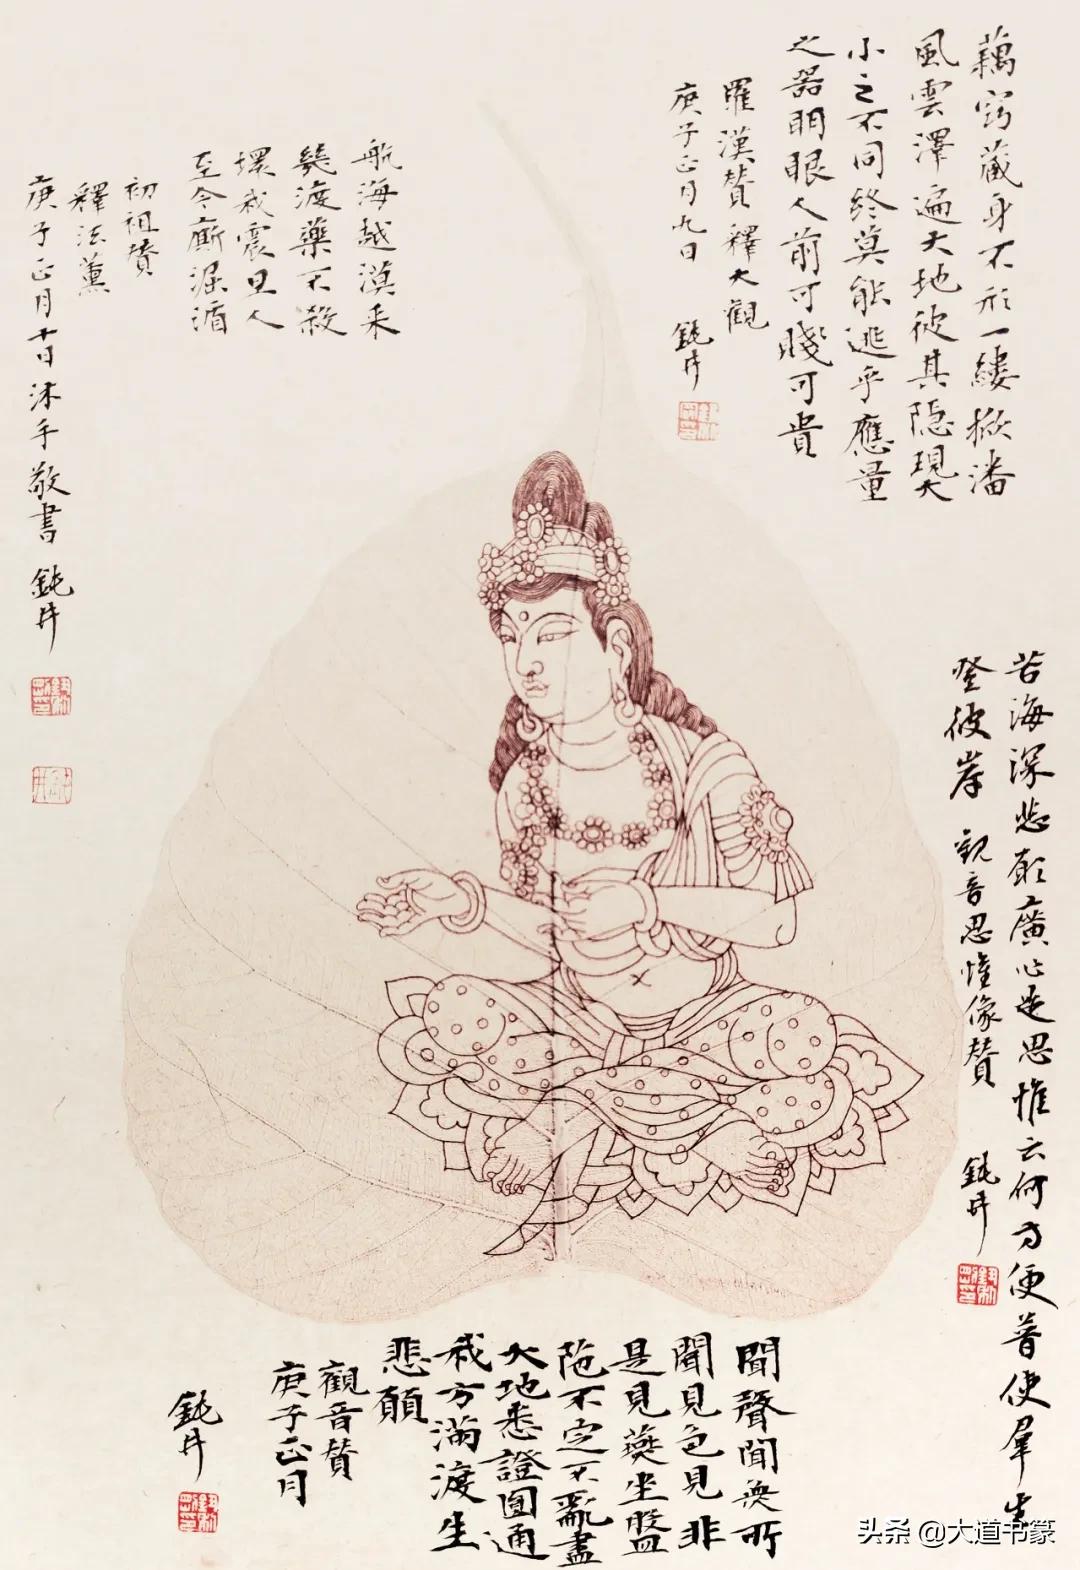 藕竅藏身不形一縷掀潘
風雲澤遍大地彼其隐現大
小之不同終莫能逃乎應量
之器明眼人前可賤可貴
羅漢贊 釋大觀
庚子正月九日 鈍丼
航海越漠来
幾渡藥不殺
壞我震旦人
至今廝混滀
初祖贊
釋法薰
庚子正月十日沐手敬書 鈍丼
苦海深悲願廣心是思惟云何方便普使羣生
登彼岸 觀音思惟像贊 鈍丼
聞聲聞無所
聞見色見非
是見燕坐盤
陁不定不亂盡
大地悉證圓通
我方滿渡生
悲願
觀音贊
庚子正月
鈍丼
头条 @大道书篆